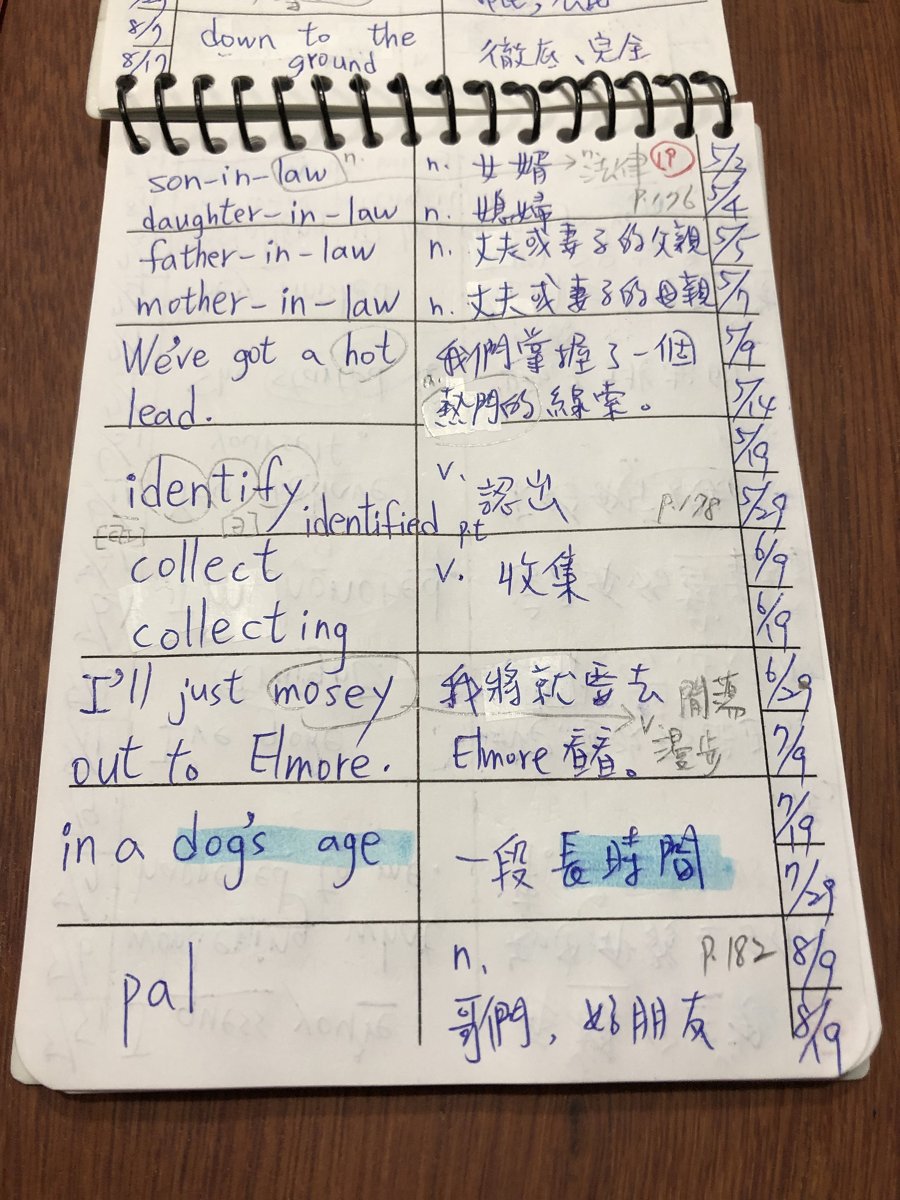 8/7
8/17
down to the
ground
徹底、完全
son-in-law n.
n. 女婿→n.法律 19
5/2
daughter-in-law
n. 媳婦
P.176
5/4
father-in-law
n. 丈夫或妻子的父親
5/5
mother-in-law
n. 丈夫或妻子的母親
5/7
We've got a hot
lead.
我們掌握了一個
熱門的線索。
5/9
5/14
identify
identified
v.
認出
p.t
p.178
5/19
5/29
collect
collecting
v. 收集
6/9
6/19
I'll just mosey
out to Elmore.
我將就要去
Elmore看看。
v. 閒蕩
漫步
6/29
7/9
in a dog's age
一段長時間
7/19
7/29
pal
n.
哥們,好朋友
P.182
8/9
8/19